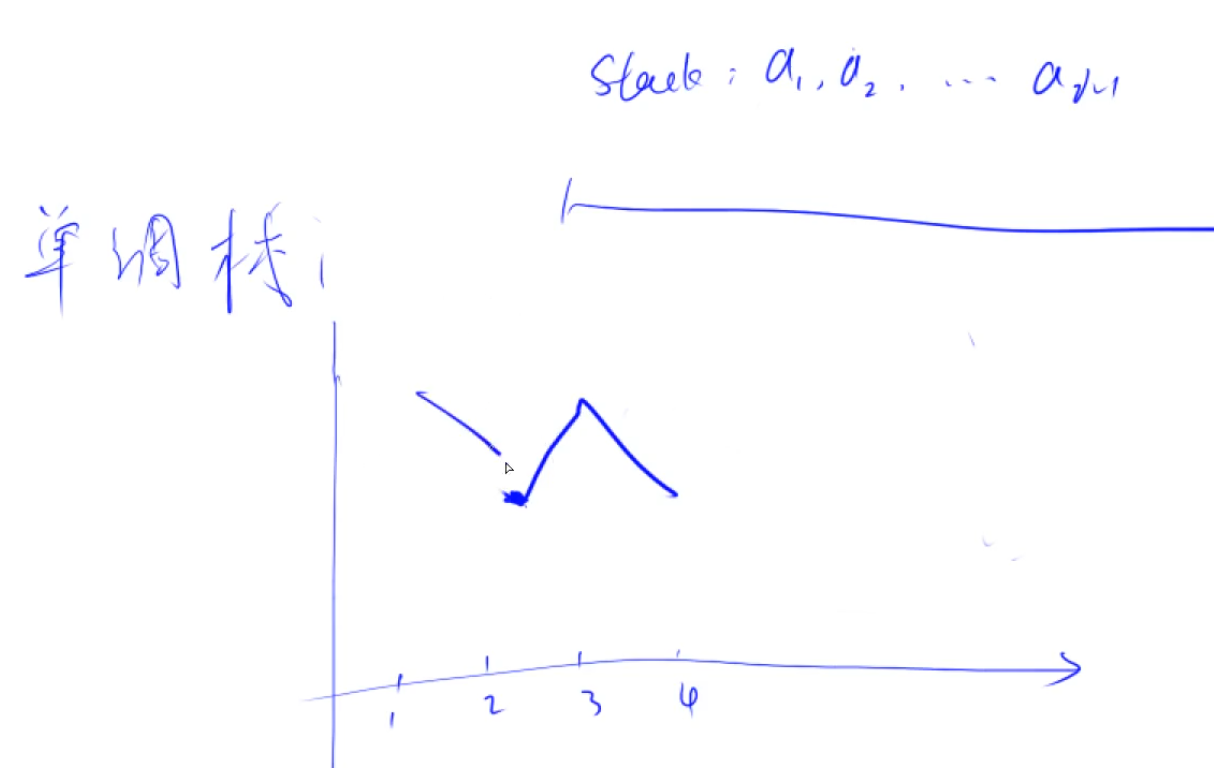 Stack: a₁, a₂, ... aₙ₋₁
单调栈:
1 2 3 4